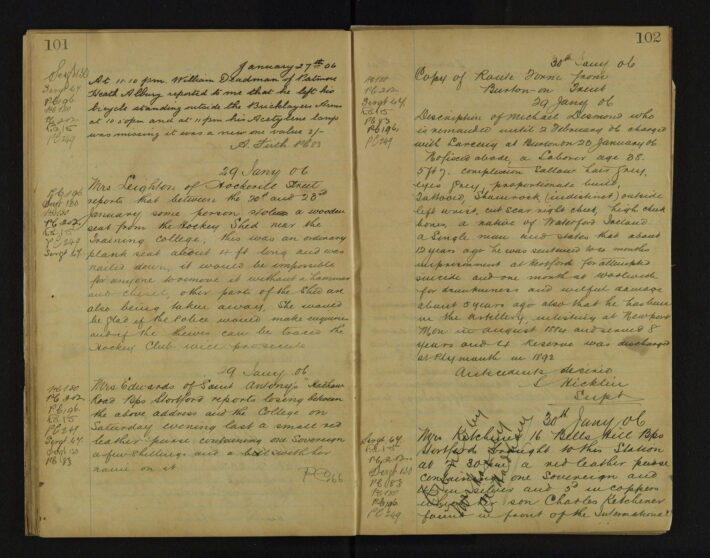 101
January 27th 06
Sergt 130
Sergt 64
PC 196
PC 120
PC 202
PC 249
At 11.10 pm. William Deadman of Patmore
Heath Albury reported to me that he left his
bicycle standing outside the Bricklayers Arms
at 10.50 pm and at 11 pm his Acetylene lamp
was missing it was a new one value 2/-
A. Firth PC 83
29 Jany 06
PC 196
Sergt 130
PC 120
PC 202
PC 249
Sergt 64
Mrs Leighton of Hockerill Street
reports that between the 20th and 23rd
January some person stole a wooden
seat from the Hockey Shed near the
Training College, this was an ordinary
plank seat about 11 ft long and was
nailed down, it would be impossible
for anyone to remove it without a hammer
and chisel, other parts of the Shed are
also being taken away. She would
be glad if the Police would make enquiries
and if the thieves can be traced the
Hockey Club will prosecute
29 Jany 06
PC 120
PC 202
PC 196
PC 249
Sergt 64
Sergt 130
PC 83
Mrs Edwards of Saint Antony's
Road Bps Stortford reports losing between
the above address and the College on
Saturday evening last a small red
leather purse containing one Sovereign
a few shillings and a with her
name on it
PC 266
102
30th Jany 06
PC 202
Sergt 64
PC 83
PC 196
PC 249
Copy of Route Form from
Burton-on Trent
29 Jany 06
Description of Michael Desmond who
is remanded until 2 February 06 charged
with Larceny at Burton on 20 January 06
No fixed abode, a Laborer age 38.
5ft 7. complexion Sallow hair Grey,
eyes Grey, proportionate build,
Tattooed, Shamrock (indistinct) outside
left wrist, cut scar right cheek, high cheek
bones, a native of Waterford Ireland.
a Single man here states that about
12 years ago he was sentenced to months
imprisonment at Hertford for attempted
suicide and one month at Woolwich
for drunkenness and wilful damage
about 5 years ago also that he has been
in the Artillery, enlisting at Newport
Mon in August 1884 and served 8
years and 4 Reserve was discharged
at Plymouth in 1892
Antecedents desired
Hicklin
Supt
30th Jany 06
Sergt 64
PC 202
Sergt 130
PC 83
PC 120
PC 196
PC 249
Mrs Ketchener 16 Bells Hill Bps
Stortford brought to this Station
at a red leather purse
containing one Sovereign and
in silver and 5d in copper
son Charles Ketchener
found in front of the International